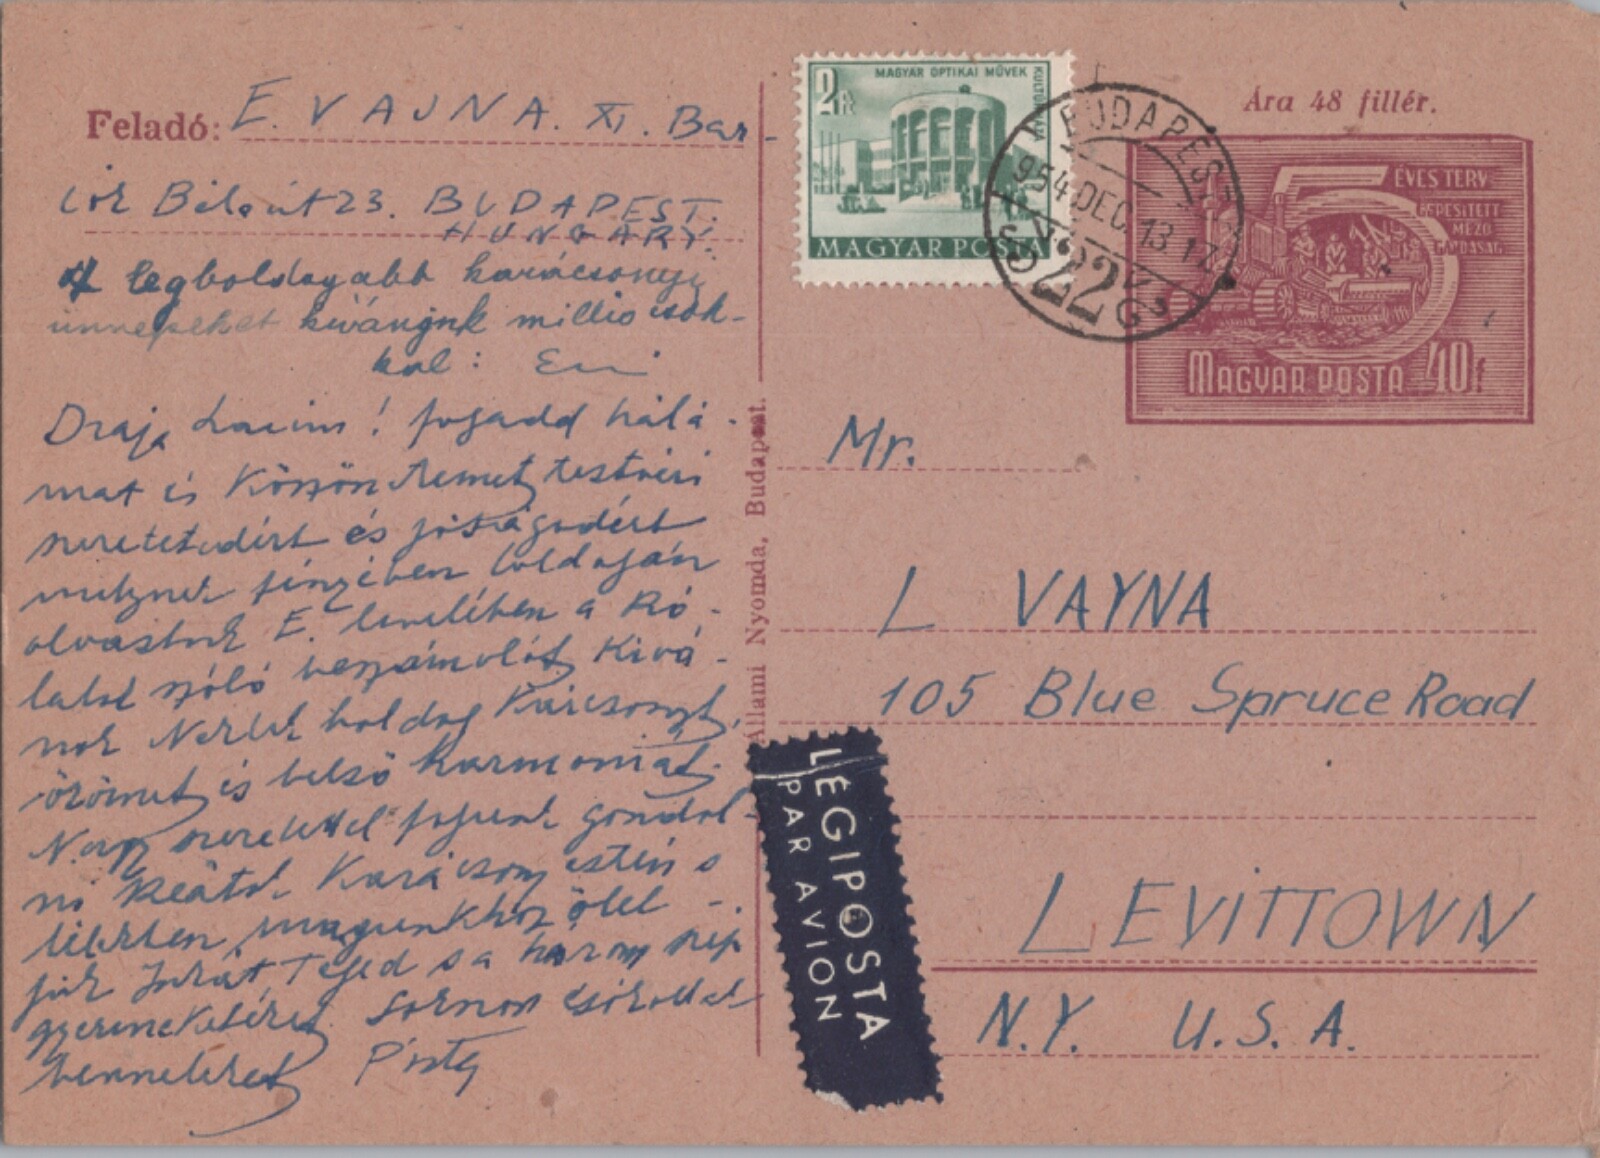 Feladó: E. VAJNA. XI. Bar-
Béla út 23. BUDAPEST.
HUNGARY.
A legboldogabb karácsonyi
ünnepeket kívánjuk millió csók-
kal: Emi
Drága Lacim! fogadd hálá-
mat és köszönetemet testvéri
szeretetedért és jóságodért
melynek fényében boldogan
olvastuk E. levelében a Ró-
latok szóló beszámolót. Kívá-
nok Nektek boldog Karácsonyt,
örömet és belső harmoniát.
Nagy szeretettel fogunk gondol-
ni Reátok Karácsony estén s
lélekben magunkhoz ölel-
jük Jutkát Téged s a három szép
gyermeketeket. Sokszor csókollak
benneteket Pista
2 Ft
MAGYAR OPTIKAI MŰVEK
KULTÚRHÁZA
MAGYAR POSTA
BUDAPEST
954.DEC.13.17
Ára 48 fillér.
5 ÉVES TERV
GÉPESÍTETT
MEZŐ-
GAZDASÁG
MAGYAR POSTA 40f
Állami Nyomda, Budapest.
Mr.
L VAYNA
105 Blue Spruce Road
LEVITTOWN
N.Y. U.S.A.
LÉGIPOSTA
PAR AVION